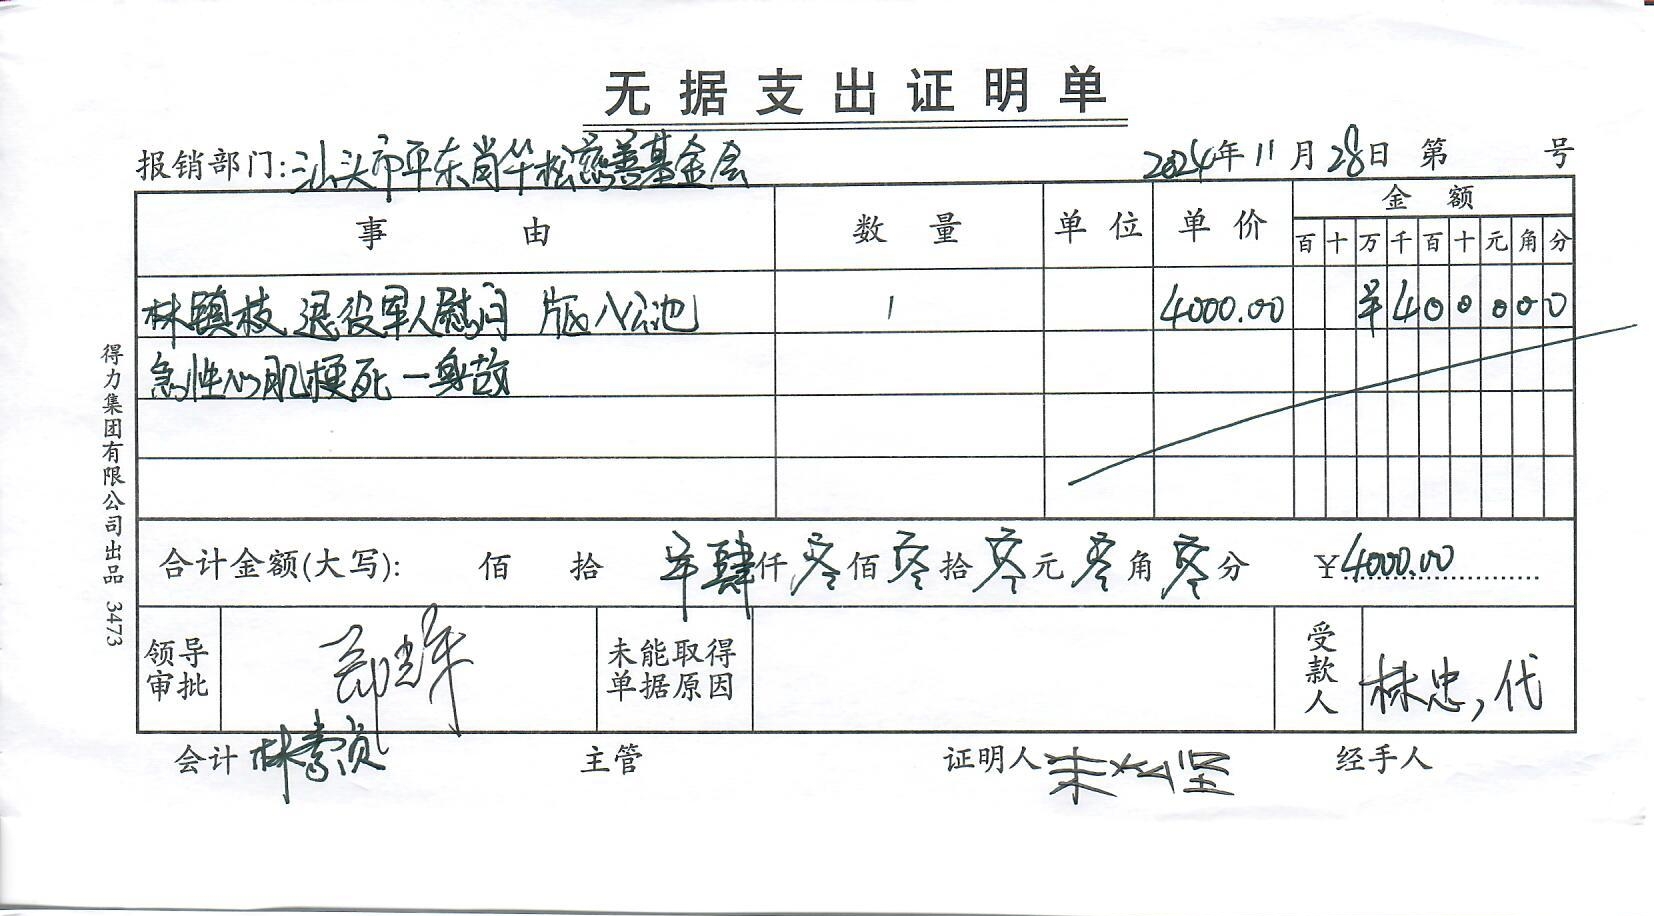 无据支出证明单
报销部门:汕头市平东尚华松慈善基金会 2024年11月28日 第 号
事由 数量 单位 单价 金额
百 十 万 千 百 十 元 角 分
林镇枝 退役军人慰问 版八公池 1 4000.00 ¥400000
急性心肌梗死-身故
合计金额(大写): 佰 拾 肆仟零佰零拾零元零角零分 ¥4000.00
领导审批 未能取得单据原因 受款人 林忠,代
会计 林 主管 证明人 坚 经手人
得力集团有限公司出品 3473